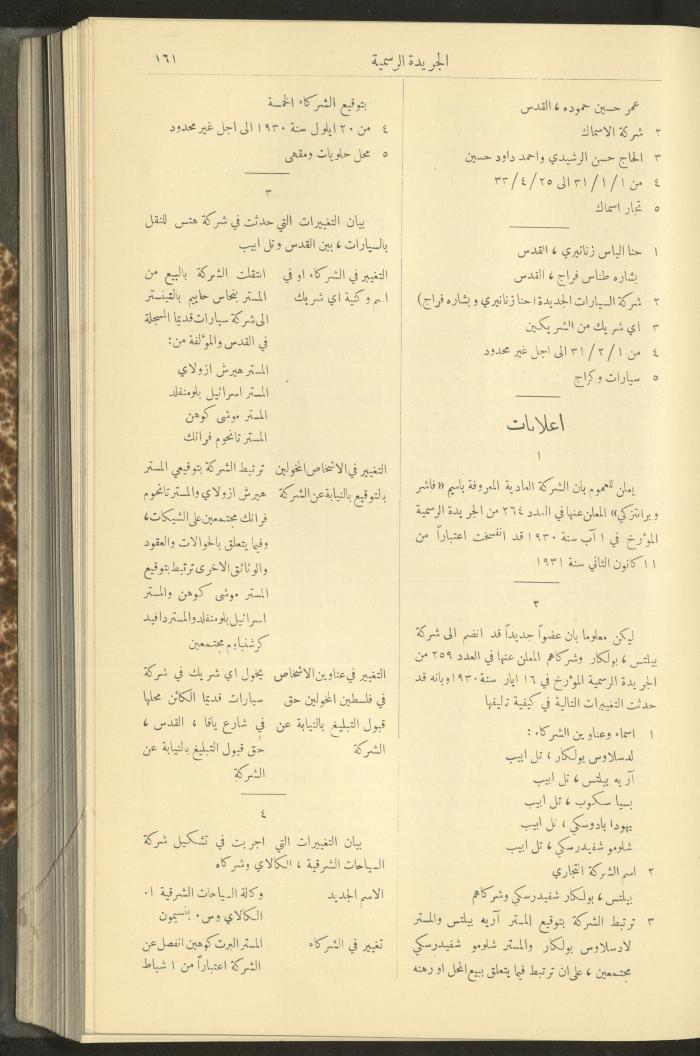 الجريدة الرسمية
١٦١
عمر حسين حموده ، القدس
٢ شركة الاسماك
٣ الحاج حسن الرشيدي واحمد داود حسين
٤ من ١/١/٣١ الى ٢٥/٤/٣٣
٥ تجار اسماك
١ حنا الياس زنانيري ، القدس
بشاره طناس فراج ، القدس
٢ شركة السيارات الجديدة (حنا زنانيري وبشاره فراج)
٣ اي شريك من الشريكين
٤ من ١/٢/٣١ الى اجل غير محدود
٥ سيارات وكراج
اعلانات
١
يعلن للعموم بان الشركة العادية المعروفة باسم «فاشر
وبرانتزكي» المعلن عنها في العدد ٢٦٤ من الجريدة الرسمية
المؤرخ في ١ آب سنة ١٩٣٠ قد انفسخت اعتباراً من
١١ كانون الثاني سنة ١٩٣١
٢
ليكن معلوما بان عضواً جديداً قد انضم الى شركة
بيلتس ، بولكار وشركاهم المعلن عنها في العدد ٢٥٩ من
الجريدة الرسمية المؤرخ في ١٦ ايار سنة ١٩٣٠ وبانه قد
حدثت التغييرات التالية في كيفية تاليفها
١ اسماء وعناوين الشركاء :
لدسلاوس بولكار ، تل ابيب
آريه بيلتس ، تل ابيب
بسيا سكوب ، تل ابيب
يهودا بادوسكي ، تل ابيب
شلومو شفيدرسكي ، تل ابيب
٢ اسم الشركة التجاري
بيلتس ، بولكار شفيدرسكي وشركاهم
٣ ترتبط الشركة بتوقيع المستر آريه بيلتس والمستر
لادسلاوس بولكار والمستر شلومو شفيدرسكي
مجتمعين ، على ان ترتبط فيما يتعلق ببيع المحل او رهنه
بتوقيع الشركاء الخمسة
٤ من ٢٠ ايلول سنة ١٩٣٠ الى اجل غير محدود
٥ محل حلويات ومقهى
٣
بيان التغييرات التي حدثت في شركة هتس للنقل
بالسيارات ، بين القدس وتل ابيب
التغيير في الشركاء او في
اسم وكنية اي شريك
انتقلت الشركة بالبيع من
المستر بنحاس حاييم بالفينستر
الى شركة سيارات قديما المسجلة
في القدس والمؤلفة من:
المستر هيرش ازولاي
المستر اسرائيل بلومنفلد
المستر موشى كوهن
المستر تانحوم فرانك
التغيير في الاشخاص المخولين
بالتوقيع بالنيابة عن الشركة
ترتبط الشركة بتوقيعي المستر
هيرش ازولاي والمستر تانحوم
فرانك مجتمعين على الشيكات ،
وفيما يتعلق بالحوالات والعقود
والوثائق الاخرى ترتبط بتوقيع
المستر موشى كوهن والمستر
اسرائيل بلومنفلد والمستر دافيد
كرشنباوم مجتمعين
التغيير في عناوين الاشخاص
في فلسطين المخولين حق
قبول التبليغ بالنيابة عن
الشركة
يخول اي شريك في شركة
سيارات قديما الكائن محلها
في شارع يافا ، القدس ،
حق قبول التبليغ بالنيابة عن
الشركة
٤
بيان التغييرات التي اجريت في تشكيل شركة
السياحات الشرقية ، الكالاي وشركاه
الاسم الجديد
وكالة السياحات الشرقية ا.
الكالاي وس. بنسيمون
تغيير في الشركاء
المستر البرت كوهين انفصل عن
الشركة اعتباراً من ١ شباط